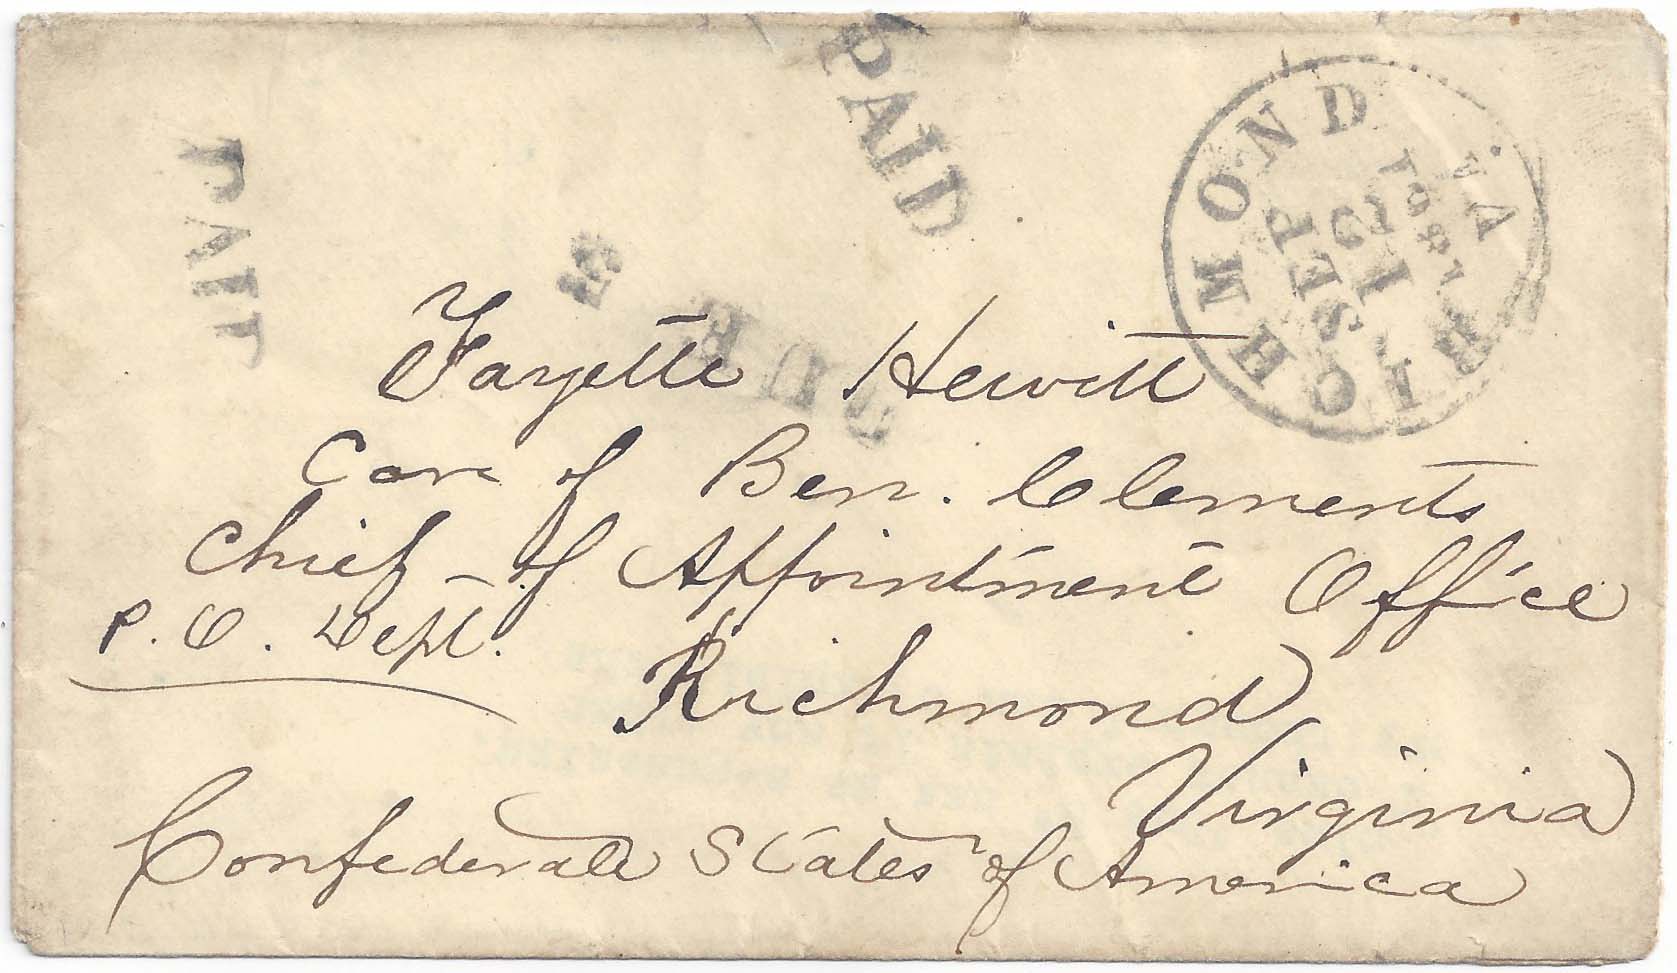 PAID
PAID
RICHMOND VA.
SEP
12
1861
DUE 5
Fayette Hewitt
Care of Ben. Clements
Chief of Appointment Office
P. O. Dept.
Richmond
Virginia
Confederate States of America